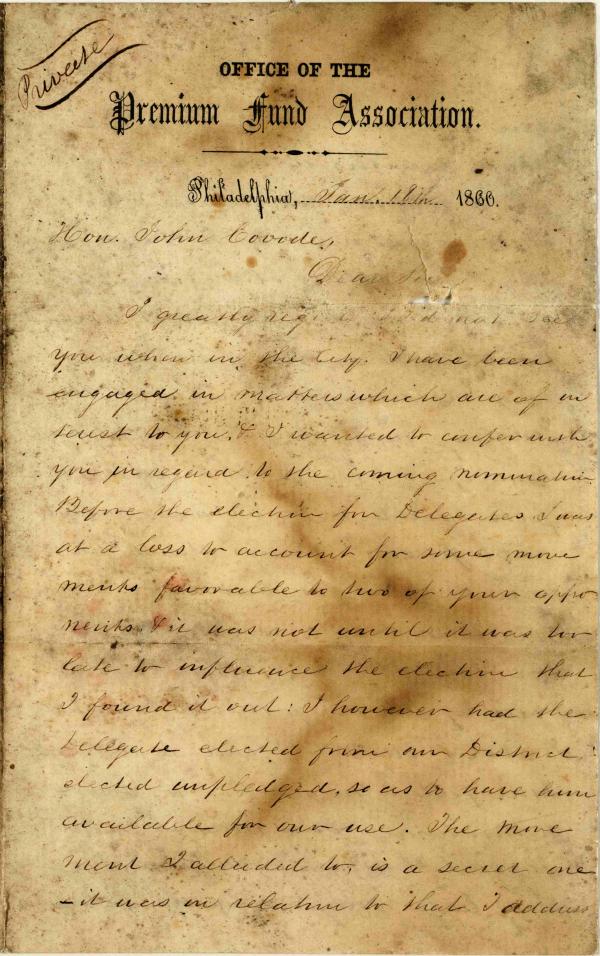 Private
OFFICE OF THE
Premium Fund Association.
Philadelphia, Jan. 18th 1866.
Hon. John Covode,
Dear Sir
I greatly regret I did not see
you when in the City. I have been
engaged in matters which are of in
terest to you, & I wanted to confer with
you in regard to the coming nomination
Before the election for Delegates I was
at a loss to account for some move
ments favorable to two of your oppo
nents & it was not until it was too
late to influence the election that
I found it out: I however had the
Delegate elected from our District
elected unpledged, so as to have him
available for our use. The move
ment I alluded to, is a secret one
- it was in relation to that I address